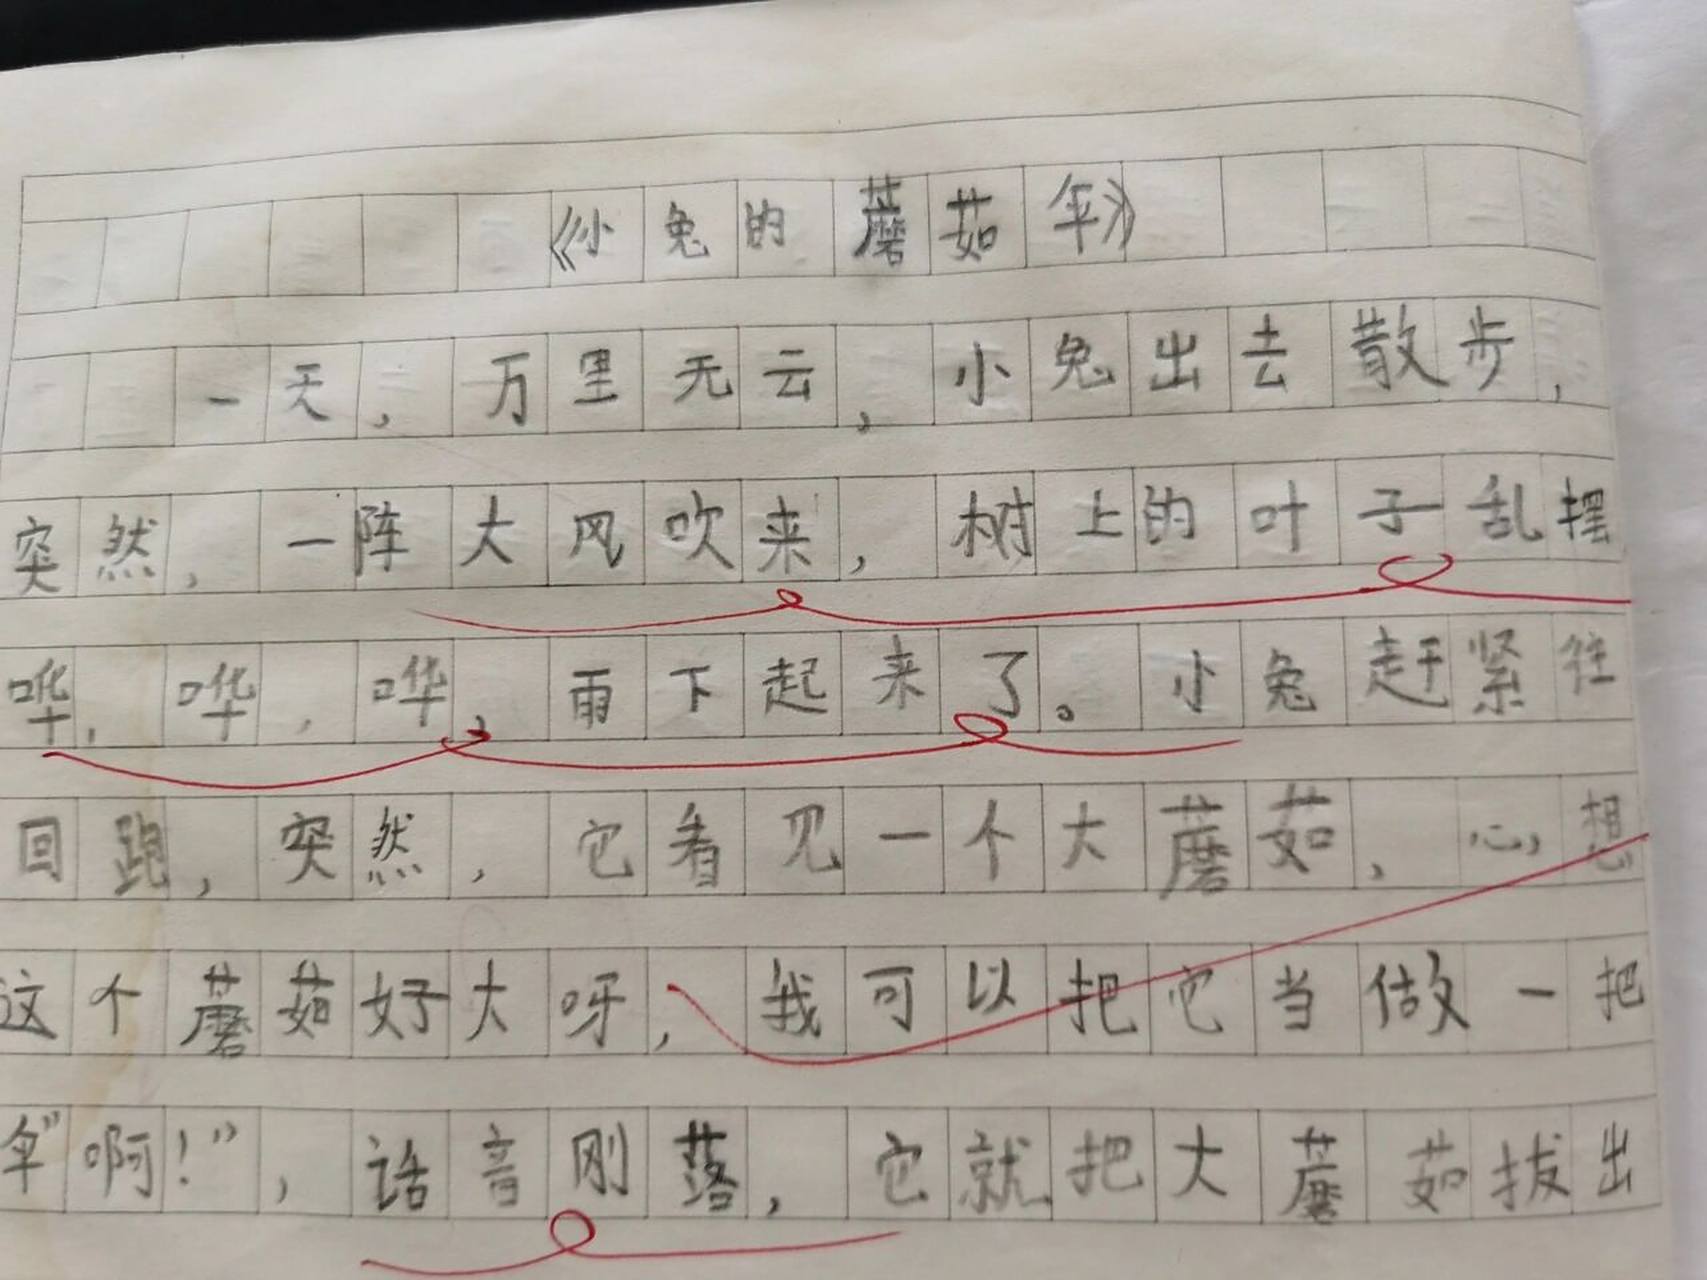 《小兔的蘑菇伞》
一天，万里无云，小兔出去散步，
突然，一阵大风吹来，树上的叶子乱摆
哗，哗，哗，雨下起来了。小兔赶紧往
回跑，突然，它看见一个大蘑菇，心想
这个蘑菇好大呀，我可以把它当做一把
伞”啊！”，话音刚落，它就把大蘑菇拔出